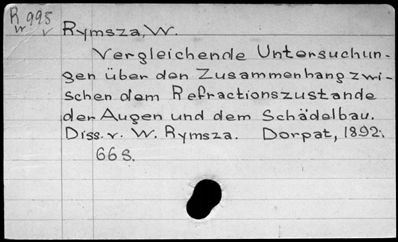 R 995
Rymsza, W.
Vergleichende Untersuchun-
gen über den Zusammenhang zwi-
schen dem Refractionszustande
der Augen und dem Schädelbau.
Diss. v. W. Rymsza. Dorpat, 1892.
66 S.